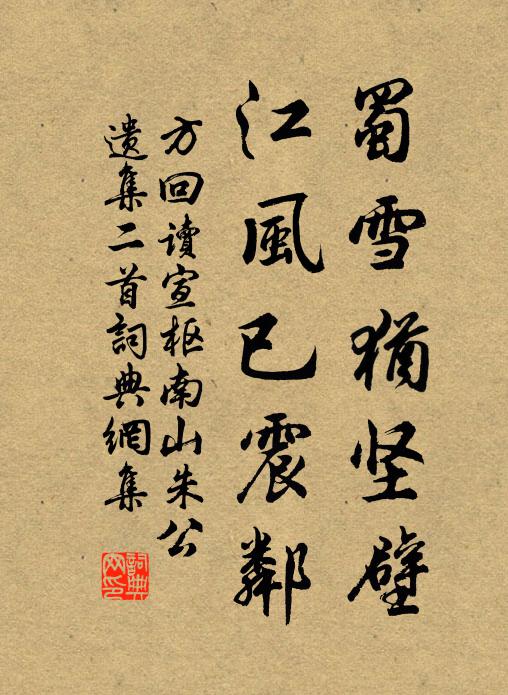 蜀雪猶坚壁
江風已震鄰
方回读宣枢南山朱公
遗集二首詞典網集
詞典
网印